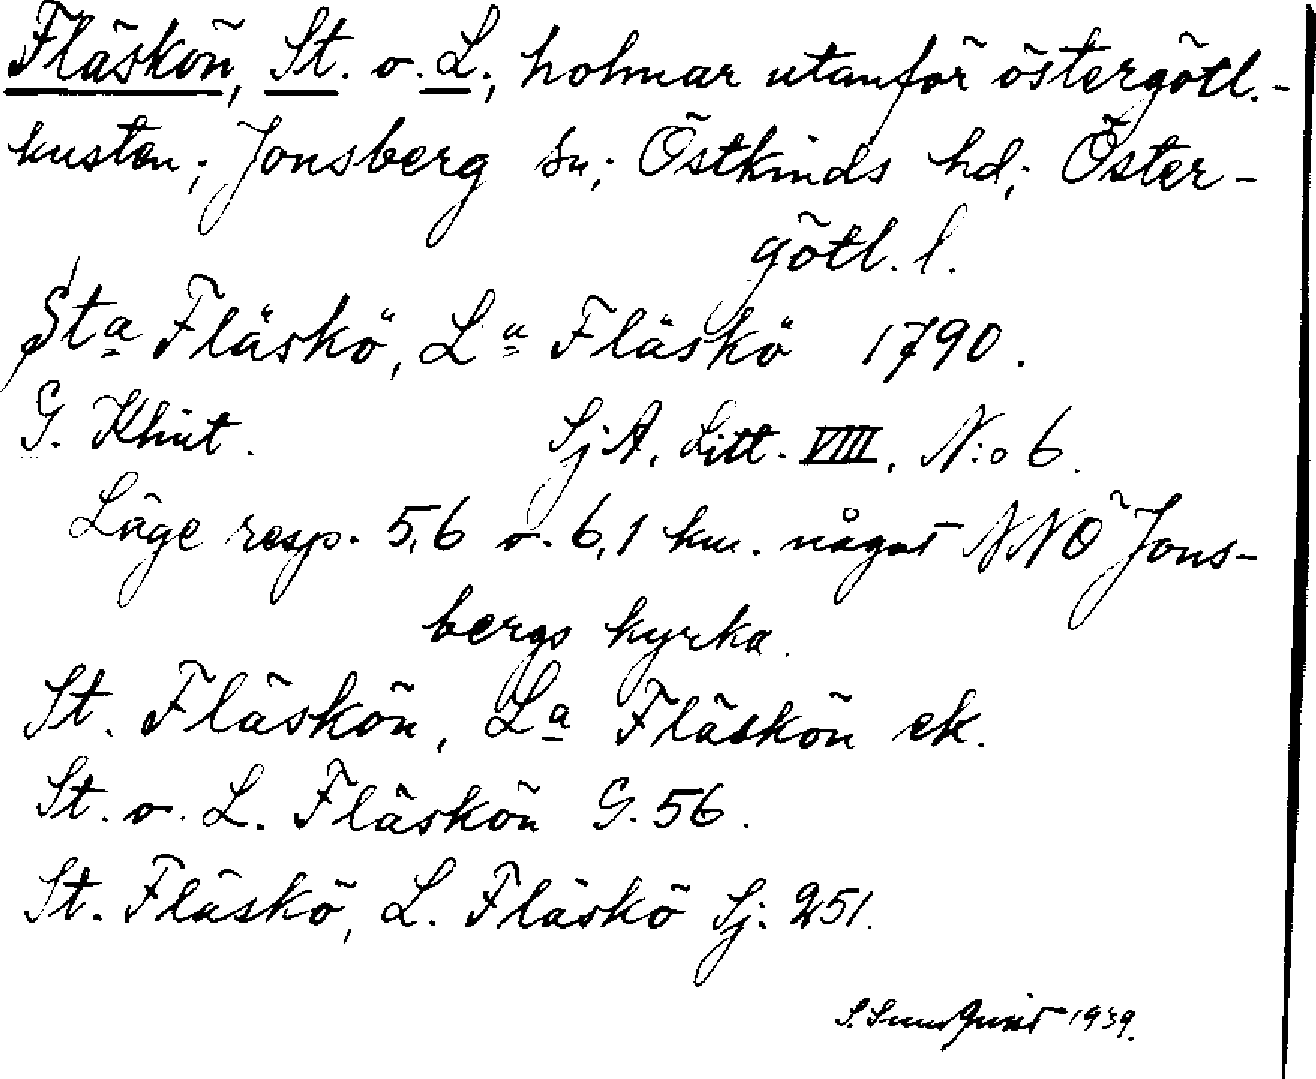 Fläskön, St. o. L., holmar utanför östergötl.-
kusten; Jonsberg sn; Östkinds hd; Öster-
götl. l.
Sta Fläskö, La Fläskö 1790.
G. Klint. SjA. Litt. VIII. N:o 6.
Läge resp. 5,6 o. 6,1 km. något NNO Jons-
bergs kyrka.
St. Fläskön, La Fläskön ek.
St. o. L. Fläskön G. 56.
St. Fläskö, L. Fläskö Sj: 251.
S. Sundquist 1939.